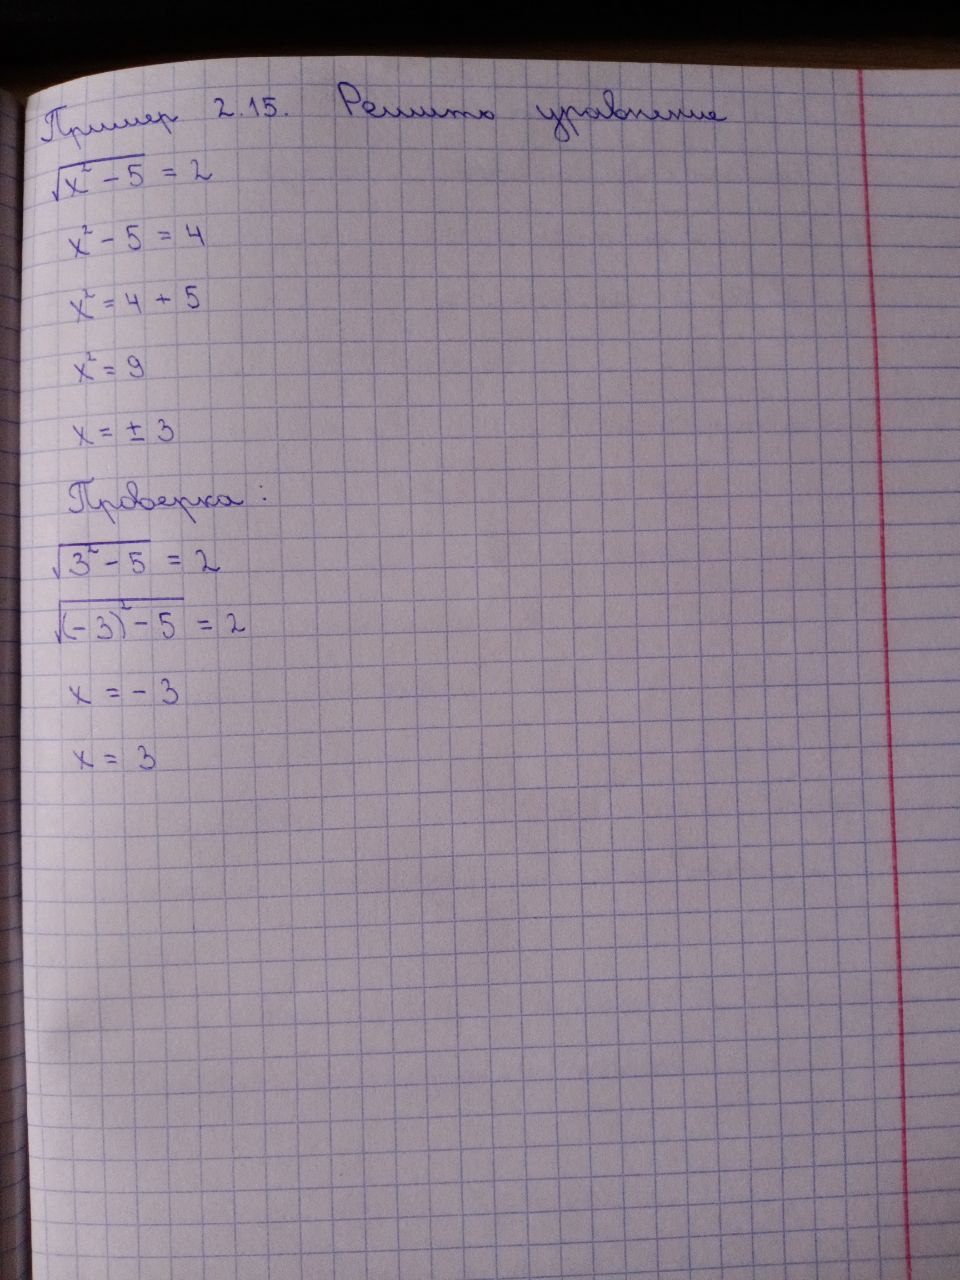 Пример 2.15. Решить уравнение
√(x² - 5) = 2
x² - 5 = 4
x² = 4 + 5
x² = 9
x = ± 3
Проверка:
√(3² - 5) = 2
√((-3)² - 5) = 2
x = - 3
x = 3